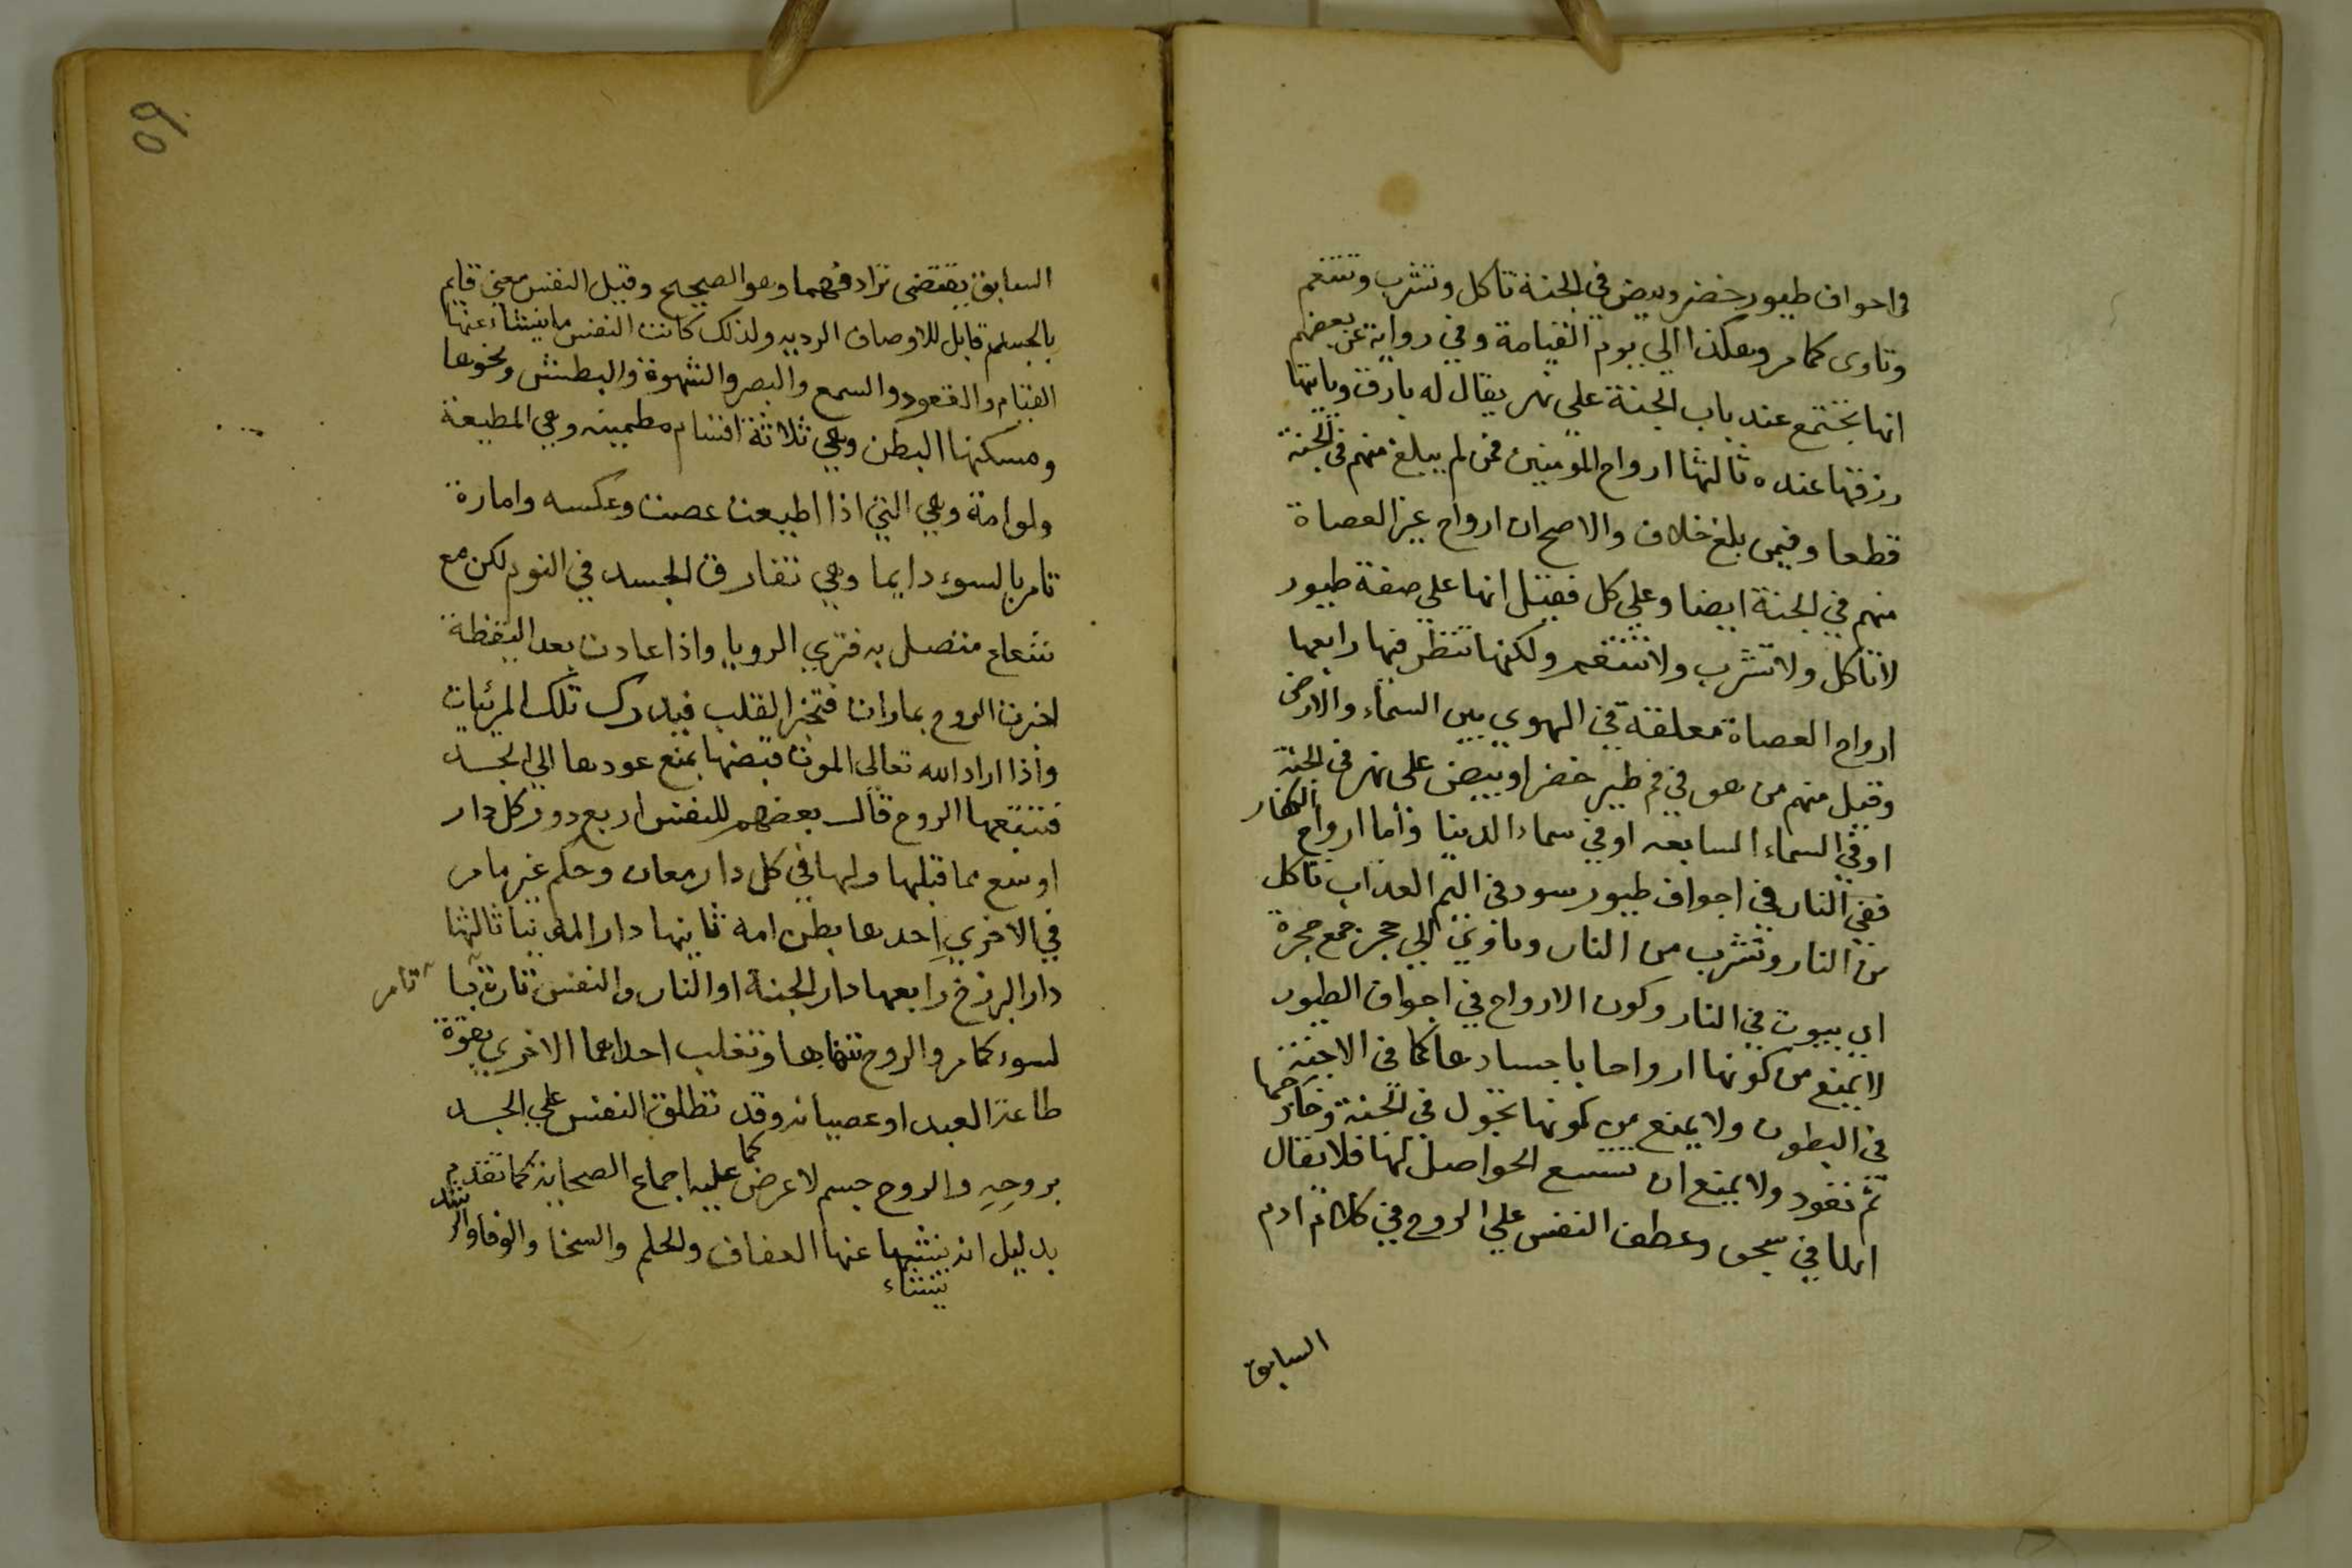 في اجواف طيور خضر وبيض في الجنة تاكل وتشرب وتتنعم
وتاوى كما مر وهكذا الي يوم القيامة وفي رواية عن بعضهم
انها تجتمع عند باب الجنة على نهر يقال له بارق وياتيها
رزقها عنده ثالثها ارواح المومنين فمن لم يبلغ منهم في الجنة
قطعا وفيمن بلغ خلاف والاصح ان ارواح غير العصاة
منهم في الجنة ايضا وعلي كل فقيل انها علي صفة طيور
لا تاكل ولا تشرب ولا تتنعم ولكنها تنظر فيها رابعها
ارواح العصاة معلقة في الهوي بين السماء والارض
وقيل منهم من هو في فم طير خضر او بيض على نهر في الجنة
او في السماء السابعه او في سماء الدنيا واما ارواح الكفار
ففي النار في اجواف طيور سود في اليم العذاب تاكل
من النار وتشرب من النار وتاوي الي حجر جمع حجرة
اي بيوت في النار وكون الارواح في اجواف الطيور
لا يمنع من كونها ارواحا باجسادها كما في الاجنة
في البطون ولا يمنع من كونها تجول في الجنة وخارجها
ثم تعود ولا يمنع ان تتسع الحواصل لها فلا يقال
انها في سجن وعطف النفس علي الروح في كلام ادم
السابق
السابق يقتضى ترادفهما وهو الصحيح وقيل النفس معني قايم
بالجسم قابل للاوصاف الرديه ولذلك كانت النفس ما ينشاء عنها
القيام والقعود والسمع والبصر والشهوة والبطش ونحوها
ومسكنها البطن وهي ثلاثة اقسام مطمينه وهي المطيعة
ولوامة وهي التي اذا اطيعت عصت وعكسه وامارة
تامر بالسوء دايما وهي تفارق الجسد في النوم لكن مع
شعاع متصل به فتري الرويا واذا عادت بعد اليقظة
اخبرت الروح بما رات فتخبر القلب فيدرك تلك المرئيات
واذا اراد الله تعالى الموت قبضها بمنع عودها الي الجسد
فتتبعها الروح قال بعضهم للنفس اربع دور كل دار
اوسع مما قبلها ولها في كل دار معان وحكم غير ما مر
في الاخري احدها بطن امه ثانيها دار الدنيا ثالثها
دار البرزخ رابعها دار الجنة او النار والنفس تارة تامر با
لسوء كما مر والروح تنهاها وتغلب احداهما الاخري بقوة
طاعة العبد او عصيانه وقد تطلق النفس علي الجسد
بروحه والروح جسم لا عرض كما عليه اجماع الصحابة كما تقدم
بدليل انه ينشاء عنها العفاف والحلم والسخا والوفا والرشد
ينشاء